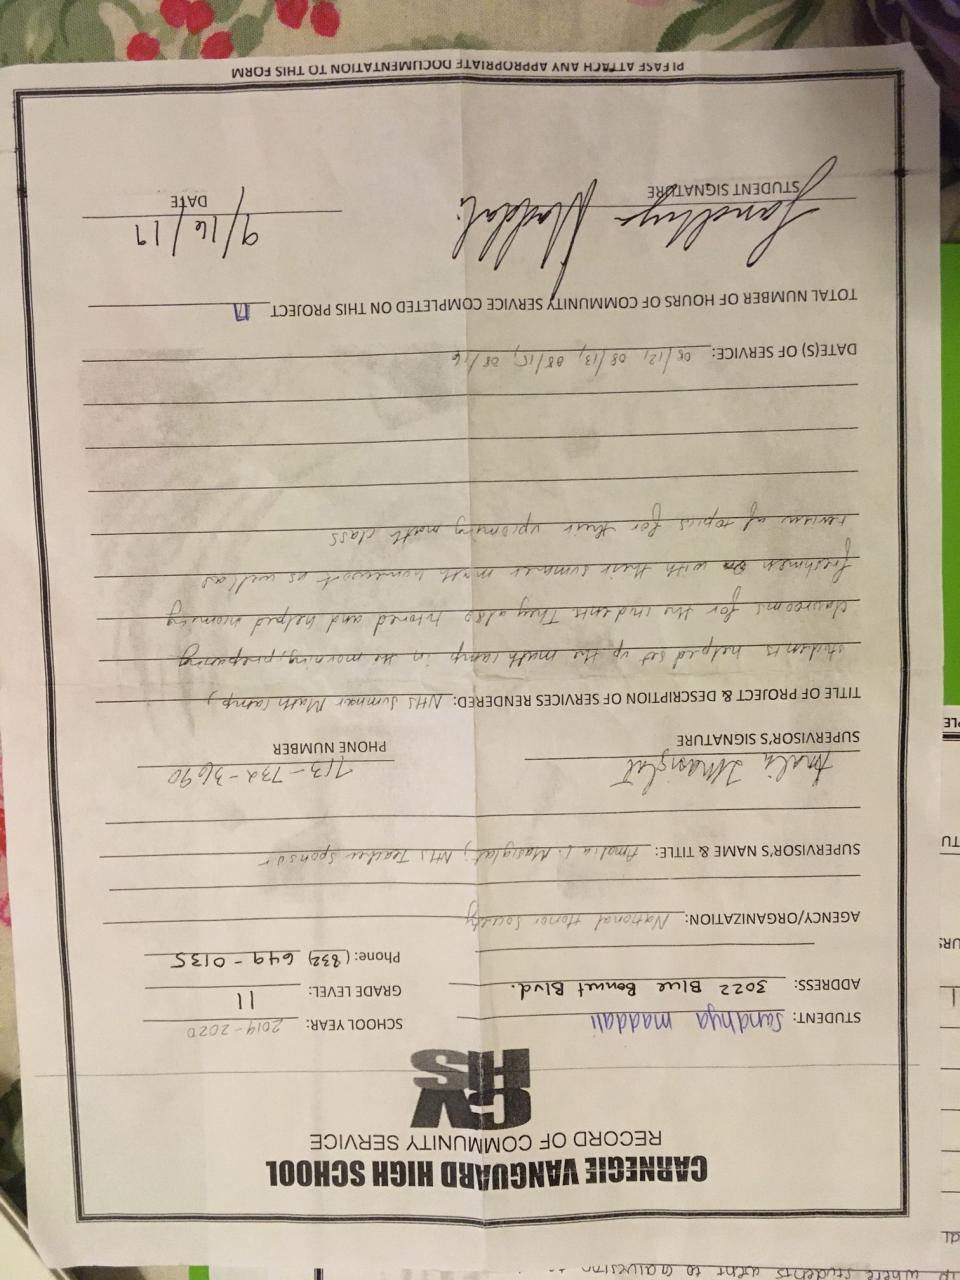 CARNEGIE VANGUARD HIGH SCHOOL
RECORD OF COMMUNITY SERVICE
CV
HS
STUDENT: Sandhya maddali SCHOOL YEAR: 2019-2020
ADDRESS: 3022 Blue Bonnet Blvd. GRADE LEVEL: 11
Phone: (832) 649-0135
AGENCY/ORGANIZATION: National Honor Society
SUPERVISOR'S NAME & TITLE: Amalia I. Masiglat, NHS Teacher Sponsor
Amalia I Masiglat 713-732-3690
SUPERVISOR'S SIGNATURE PHONE NUMBER
TITLE OF PROJECT & DESCRIPTION OF SERVICES RENDERED: NHS Summer Math Camp,
students helped set up the math camp in the morning, preparing
classrooms for the students. They also tutored and helped incoming
freshmen with their summer math homework as well as
review of topics for their upcoming math class
DATE(S) OF SERVICE: 08/12, 08/13, 08/15, 08/16
TOTAL NUMBER OF HOURS OF COMMUNITY SERVICE COMPLETED ON THIS PROJECT 17
Sandhya Maddali 9/16/19
STUDENT SIGNATURE DATE
PLEASE ATTACH ANY APPROPRIATE DOCUMENTATION TO THIS FORM